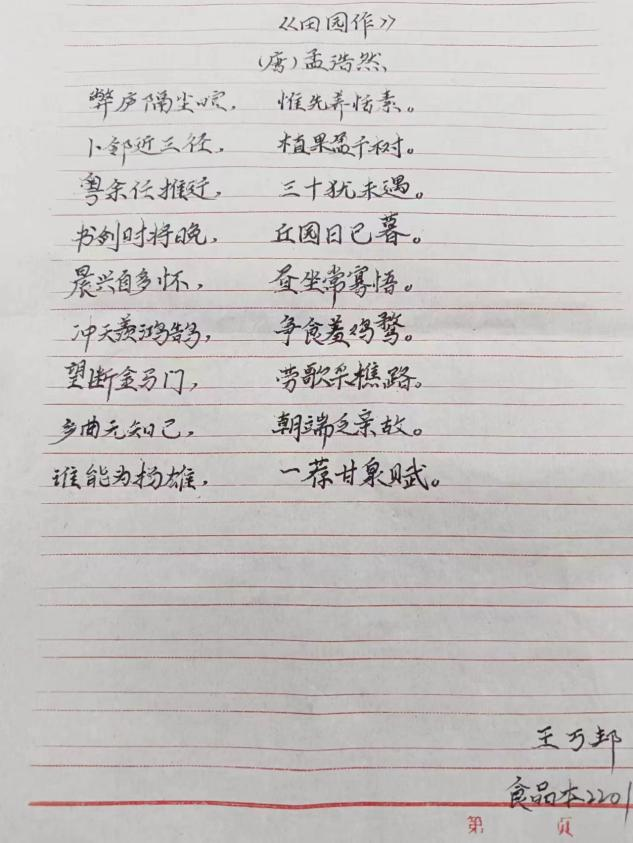 《田园作》
(唐)孟浩然
弊庐隔尘喧, 惟先养恬素。
卜邻近三径, 植果盈千树。
粤余任推迁, 三十犹未遇。
书剑时将晚, 丘园日已暮。
晨兴自多怀, 昼坐常寡悟。
冲天羡鸿鹄, 争食羞鸡鹜。
望断金马门, 劳歌采樵路。
乡曲无知己, 朝端乏亲故。
谁能为杨雄, 一荐甘泉赋。
王万邦
食品本2201
第 页